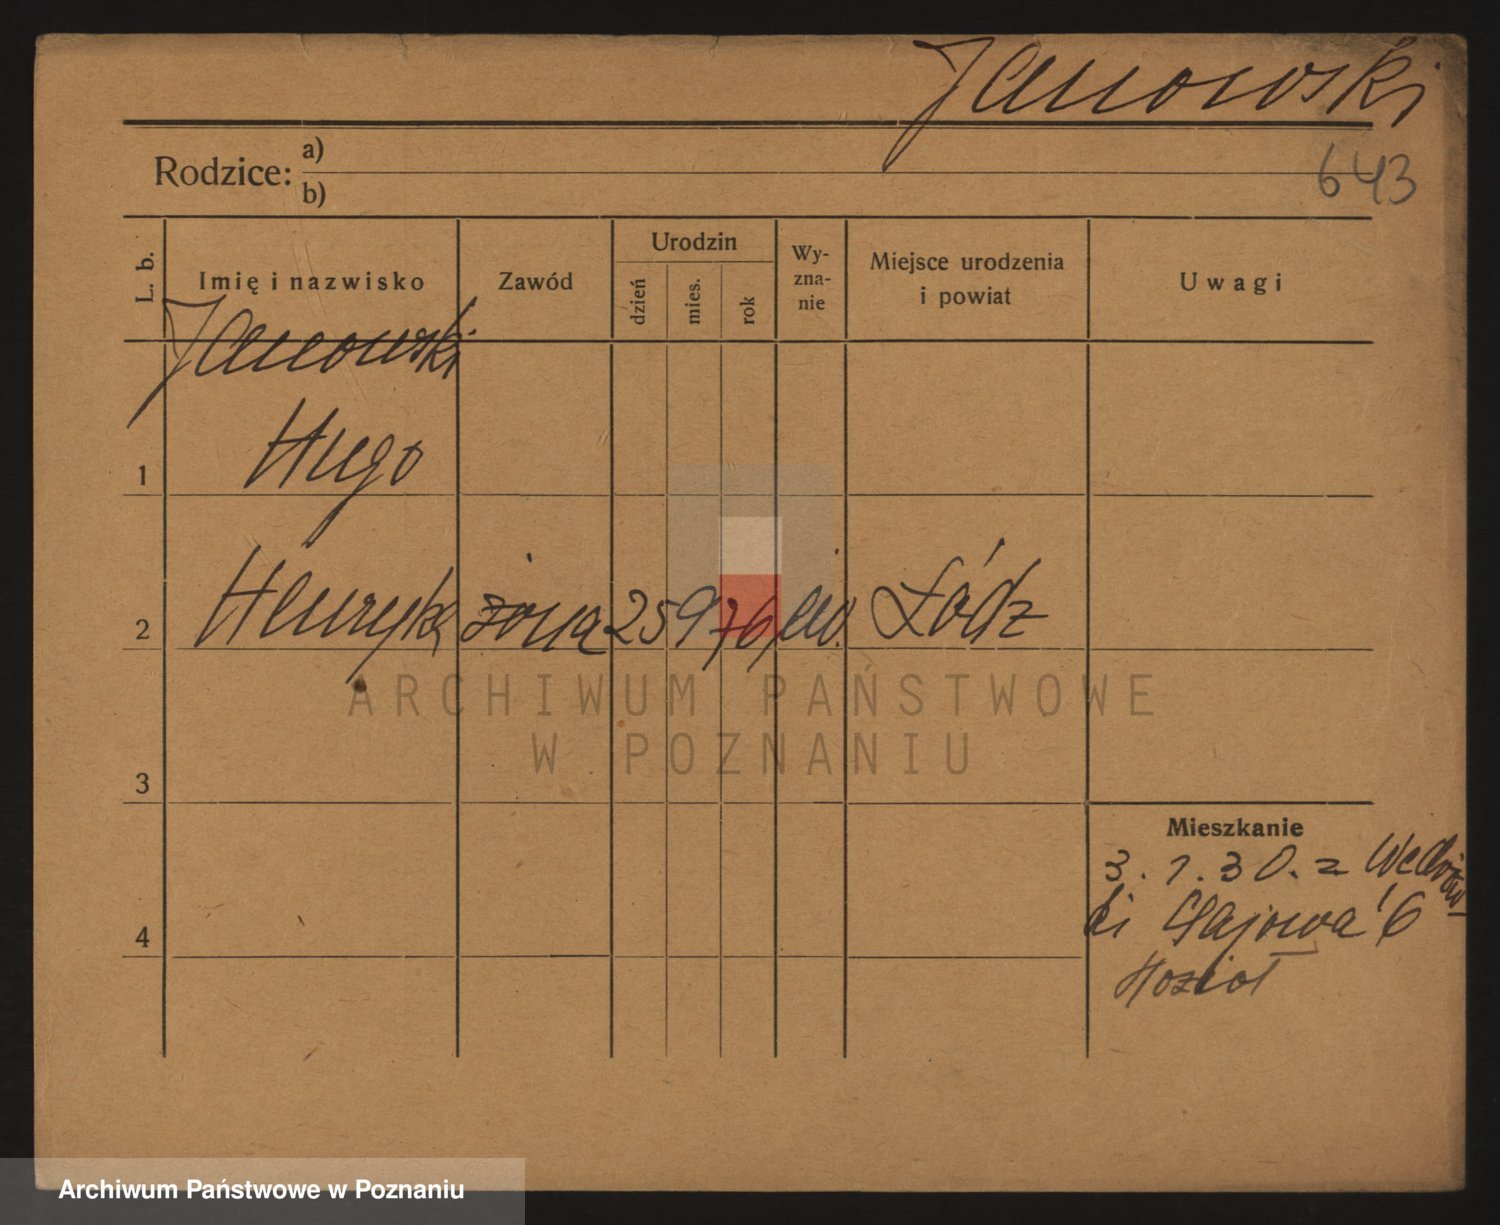 Janowski
643
Rodzice: a)
b)
L. b.
Imię i nazwisko
Zawód
Urodzin
dzień
mies.
rok
Wy-
zna-
nie
Miejsce urodzenia
i powiat
Uwagi
Janowski
Hugo
1
2 Henryka żona 25 9 76 Łódz
3
4
Mieszkanie
3. 1. 30. z
6
ARCHIWUM PAŃSTWOWE
W POZNANIU
Archiwum Państwowe w Poznaniu